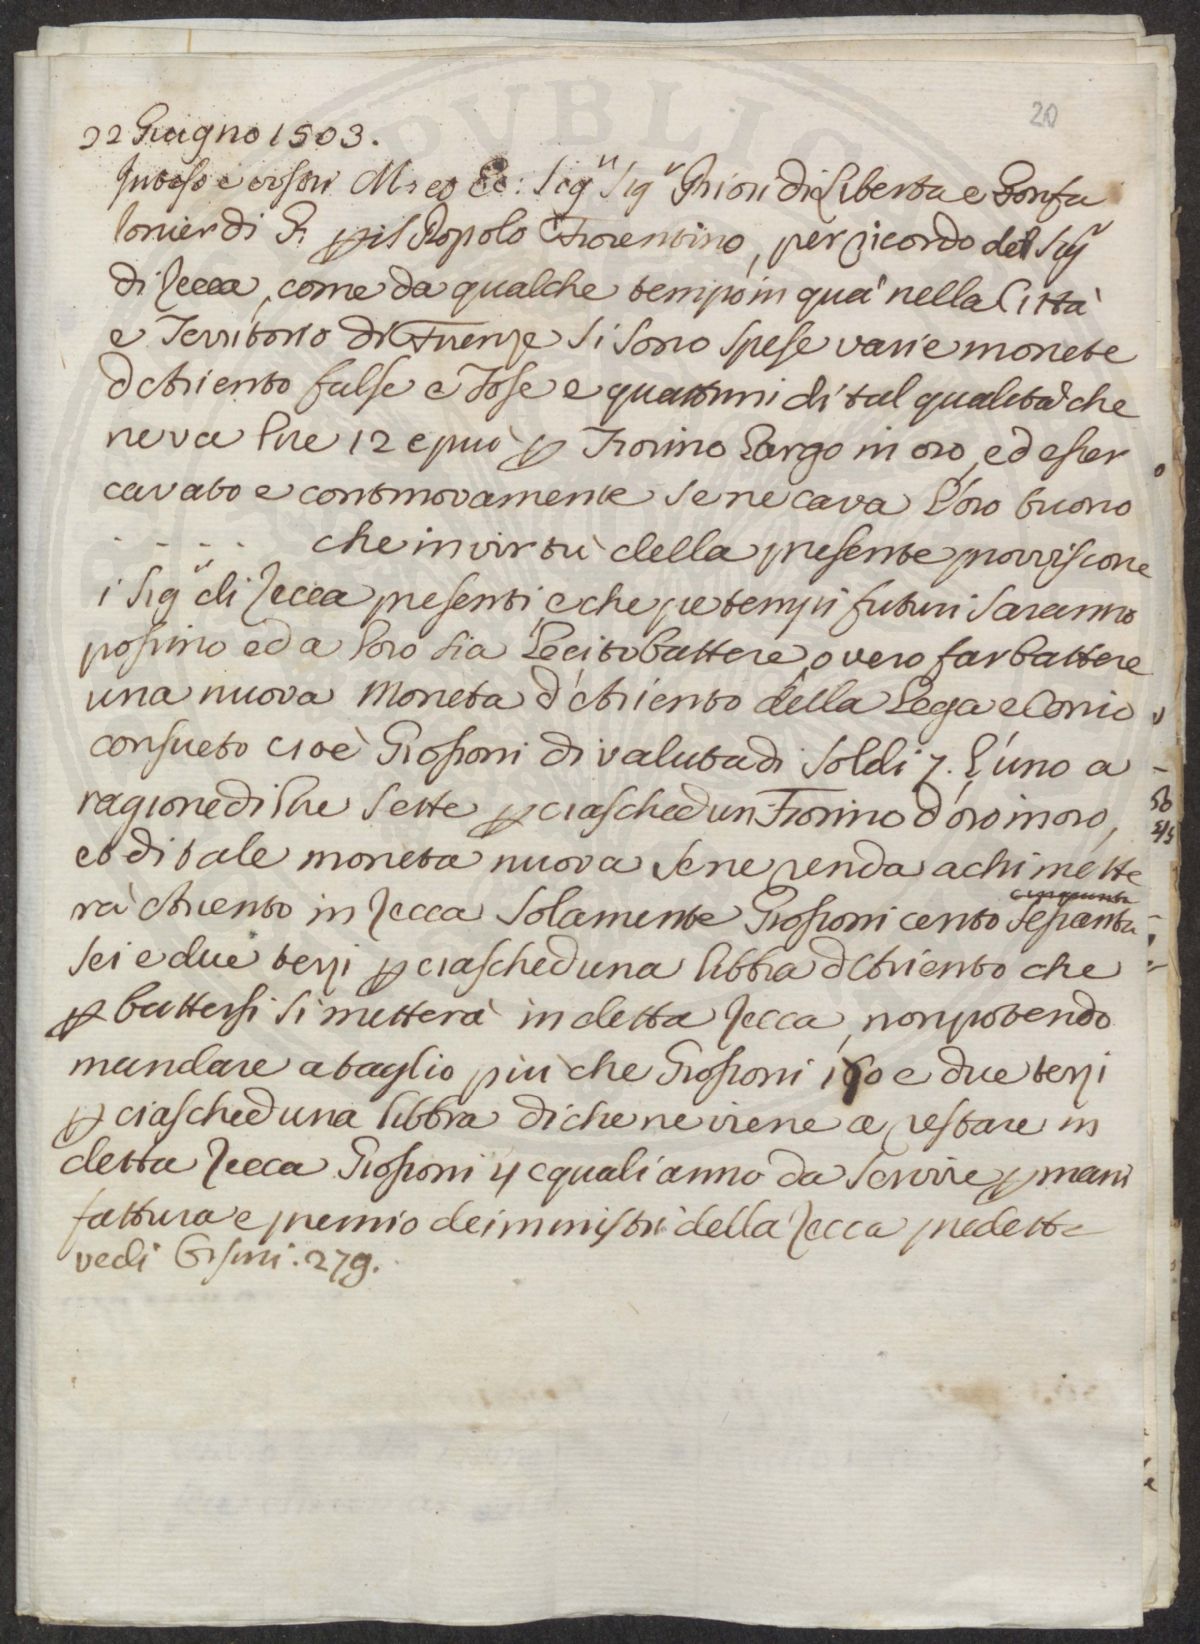 20
22 Giugno 1503.
Inteso e vostri M.ci et Ec: Sig.ri Sig.ri Priori di Liberta e Gonfa
lonier di G. p il Popolo Fiorentino, per ricordo del Sig.ri
di Zecca, come da qualche tempo in quà nella Città
e Territorio di Firenze si sono spese varie monete
d'Ariento false e tose e quattrini di tal qualità che
ne va lire 12 e più p Fiorino Largo in oro, ed esser
cavato e continovamente se ne cava l'oro buono
. . . . che in virtù della presente provvisione
i Sig.ri di Zecca presenti, e che pe tempi futuri saranno
possino ed a loro sia lecito battere, o vero far battere
una nuova Moneta d'Ariento della Lega e Conio
consueto cioè Grossoni di valuta di Soldi 7. l'uno a
ragione di lire sette p ciaschedun Fiorino d'oro in oro,
et di tale moneta nuova se ne renda a chi mette
rà Ariento in Zecca solamente Grossoni cento sessanta
cinquanta
sei e due terzi p ciascheduna libbra d'Ariento che
p battersi si metterà in detta Zecca, non potendo
mandare a taglio più che Grossoni e due terzi
p ciascheduna libbra di che ne viene a restare in
detta Zecca Grossoni 4 e quali anno da servire p mani
fattura e premio de i ministri della Zecca predetta
vedi 279.